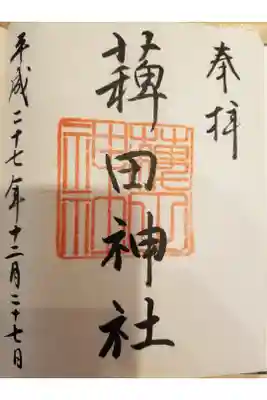 奉拝
薭田神社
平成二十七年十二月二十七日